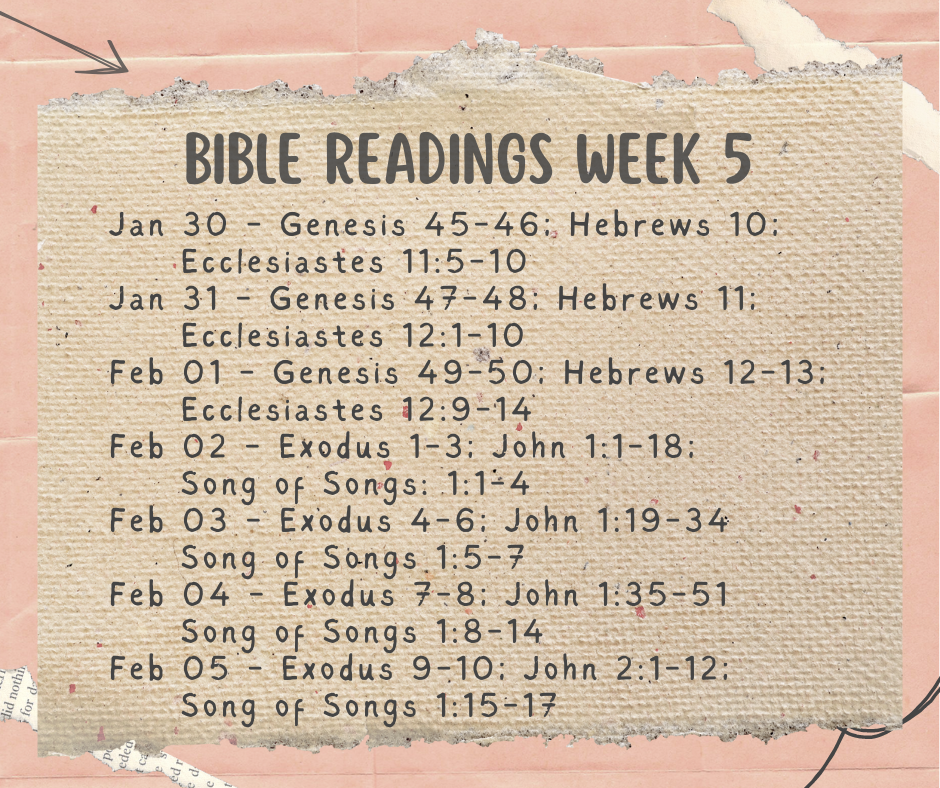 BIBLE READINGS WEEK 5
Jan 30 - Genesis 45-46; Hebrews 10;
Ecclesiastes 11:5-10
Jan 31 - Genesis 47-48; Hebrews 11;
Ecclesiastes 12:1-10
Feb 01 - Genesis 49-50; Hebrews 12-13;
Ecclesiastes 12:9-14
Feb 02 - Exodus 1-3; John 1:1-18;
Song of Songs: 1:1-4
Feb 03 - Exodus 4-6; John 1:19-34
Song of Songs 1:5-7
Feb 04 - Exodus 7-8; John 1:35-51
Song of Songs 1:8-14
Feb 05 - Exodus 9-10; John 2:1-12;
Song of Songs 1:15-17
did nothi
for d